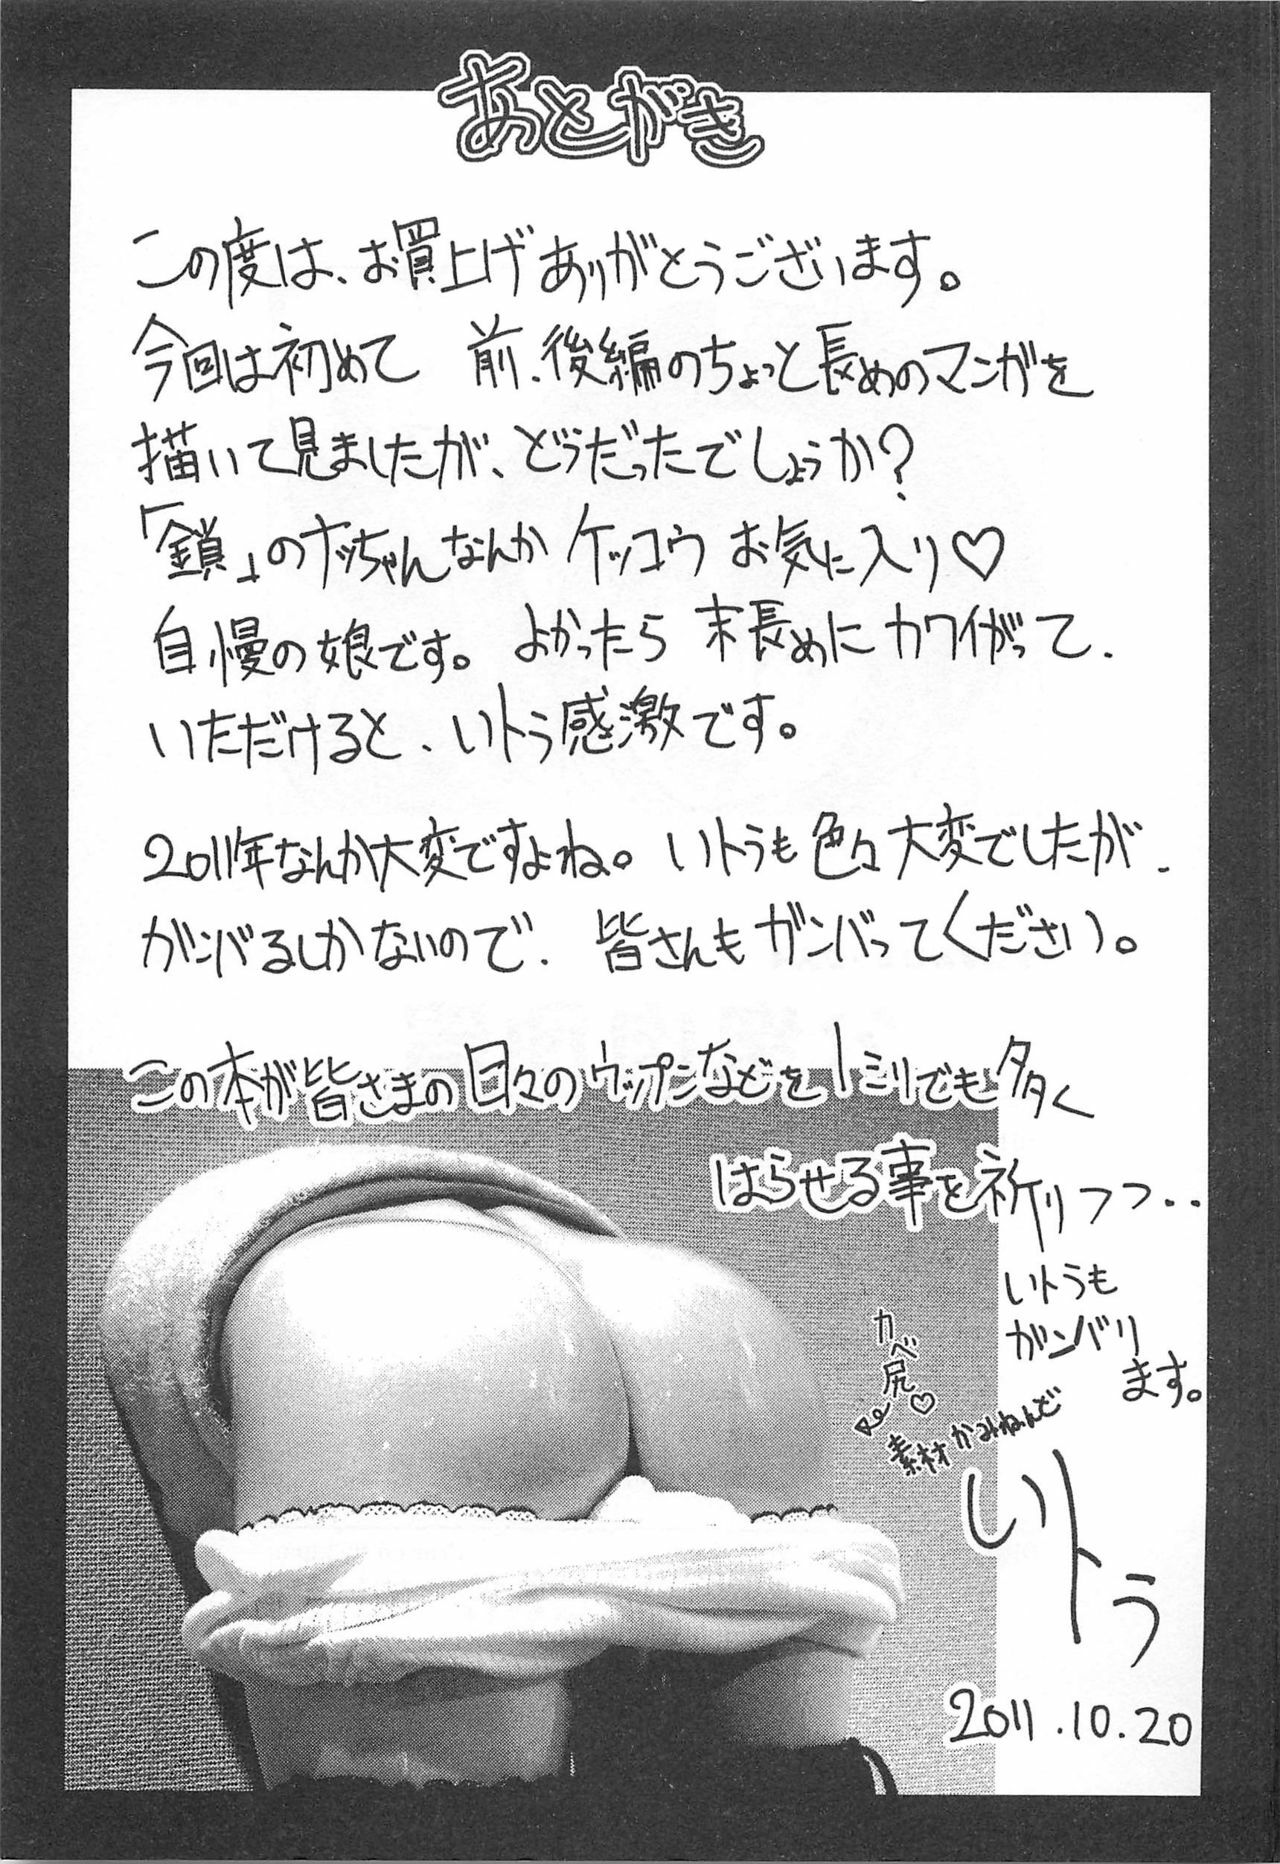 あとがき
この度は、お買上げありがとうございます。
今回は初めて 前、後編のちょっと長めのマンガを
描いて見ましたが、どうだったでしょうか?
「鎖」のナッちゃんなんか ケッコウ お気に入り♡
自慢の娘です。よかったら 末長めに カワイがって、
いただけると、いトう感激です。
2011年なんか大変ですよね。いトうも色々大変でしたが、
ガンバるしかないので、皆さんもガンバってください。
この本が皆さまの日々のウップンなどを1ミリでも多く
はらせる事を祈りつつ‥
いトうも
ガンバり
ます。
カベ尻♡
素材 かみねんど
いトう
2011.10.20